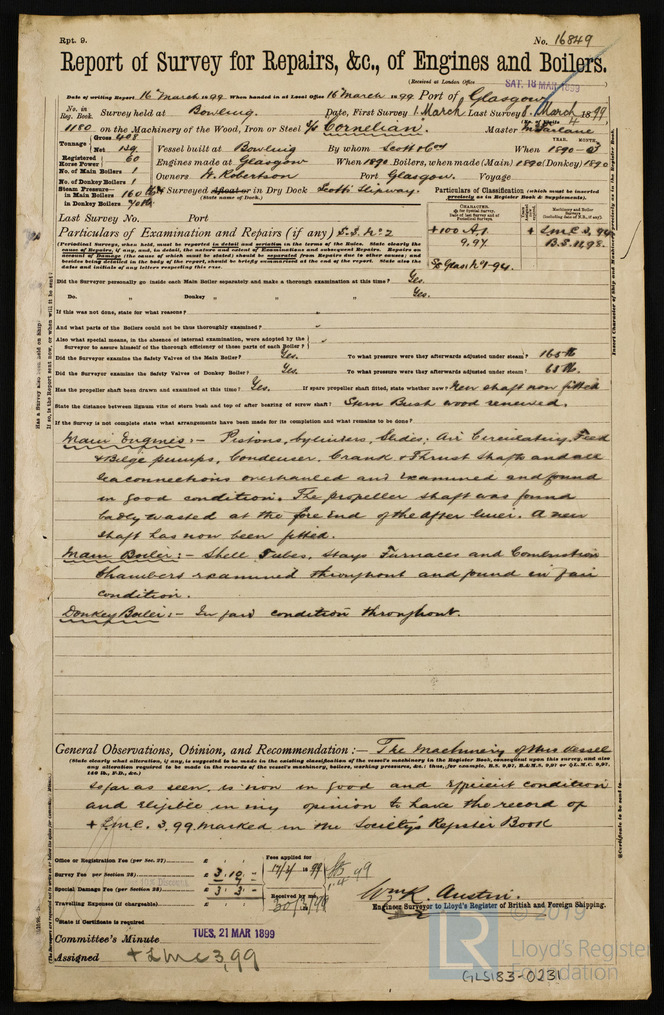 Rpt. 9.
No. 16849
Report of Survey for Repairs, &c., of Engines and Boilers.
(Received at London Office SAT. 18 MAR 1899)
Date of writing Report 16th March 1899 When handed in at Local Office 16 March 1899 Port of Glasgow
No. in Reg. Book. Survey held at Bowling. Date, First Survey 1 March Last Survey 8 March 1899
(No. of Visits 4)
1180 on the Machinery of the Wood, Iron or Steel Cornelian. Master McFarlane
Tonnage Gross 408 Net 129 Vessel built at Bowling By whom Scott & Co When 1890
YEAR. MONTH.
Registered Horse Power 60 Engines made at Glasgow When 1890 Boilers, when made (Main) 1890 (Donkey) 1890
No. of Main Boilers 1 Owners W. Robertson Port Glasgow. Voyage
No. of Donkey Boilers 1
Steam Pressure in Main Boilers 160 lbs If Surveyed Afloat or in Dry Dock Scott's Slipway.
(State name of Dock.)
in Donkey 70 lbs
Particulars of Classification (which must be inserted precisely as in Register Book & Supplements).
Last Survey No. Port
+100 A1. 9.97.
+ LMC 3,94 B.S. 11.98.
SS Glas. No 1-94.
Particulars of Examination and Repairs (if any) S.S. No. 2
(Periodical Surveys, when held, must be reported in detail and seriatim in the terms of the Rules. State clearly the
cause of Repairs, if any, and, in detail, the nature and extent of Examinations and subsequent Repairs. Repairs on
account of Damage (the cause of which must be stated) should be separated from Repairs due to other causes; and
besides being detailed in the body of the report, should be briefly summarised at the end of the report. State also the
dates and initials of any letters respecting this case.
Did the Surveyor personally go inside each Main Boiler separately and make a thorough examination at this time? Yes.
Do. " Donkey " " " Yes.
If this was not done, state for what reasons? "
And what parts of the Boilers could not be thus thoroughly examined? "
Also what special means, in the absence of internal examination, were adopted by the
Surveyor to assure himself of the thorough efficiency of these parts of each Boiler? "
Did the Surveyor examine the Safety Valves of the Main Boiler? Yes. To what pressure were they afterwards adjusted under steam? 165 lb
Did the Surveyor examine the Safety Valves of Donkey Boiler? Yes. To what pressure were they afterwards adjusted under steam? 65 lb.
Has the propeller shaft been drawn and examined at this time? Yes. If spare propeller shaft fitted, state whether new? New shaft now fitted
State the distance between lignum vitæ of stern bush and top of after bearing of screw shaft? Stern Bush wood renewed.
If the Survey is not complete state what arrangements have been made for its completion and what remains to be done?
Main Engines:- Pistons, Cylinders, Slides; Air Circulating Feed
& Bilge pumps, Condenser, Crank & Thrust shafts and all
Sea connections overhauled and examined and found
in good condition. The propeller shaft was found
badly wasted at the fore end of the after liner. A new
shaft has now been fitted.
Main Boiler:- Shell Tubes, Stays Furnaces and Combustion
Chambers examined throughout and found in fair
condition.
Donkey Boiler:- In fair condition throughout.
General Observations, Opinion, and Recommendation:— The Machinery of this vessel
(State clearly what alteration, if any, is suggested to be made in the existing classification of the vessel's machinery in the Register Book, consequent upon this survey, and also
any alteration required to be made in the records of the vessel's machinery, boilers, working pressures, &c.: thus, (for example, B.S. 9,97, B&M.S. 9,97 or + L.M.C. 9,97,
140 lb., F.D., &c.)
so far as seen, is now in good and efficient condition
and eligible in my opinion to have the record of
+ LMC. 3.99. marked in the Society's Register Book
Office or Registration Fee (per Sec. 27) £ : :
Survey Fee (per Section 28) £ 3 : 10 : -
Special Damage Fee (per Section 28) £ 3 : 3 : -
Travelling Expenses (if chargeable) £ : :
Fees applied for
Received by me,
Wm R. Austin.
Engineer Surveyor to Lloyd's Register of British and Foreign Shipping.
State if Certificate is required
Committee's Minute TUES. 21 MAR 1899
Assigned + LMC 3,99
© 2019
LR
Lloyd's Register
Foundation
GLS183-0231